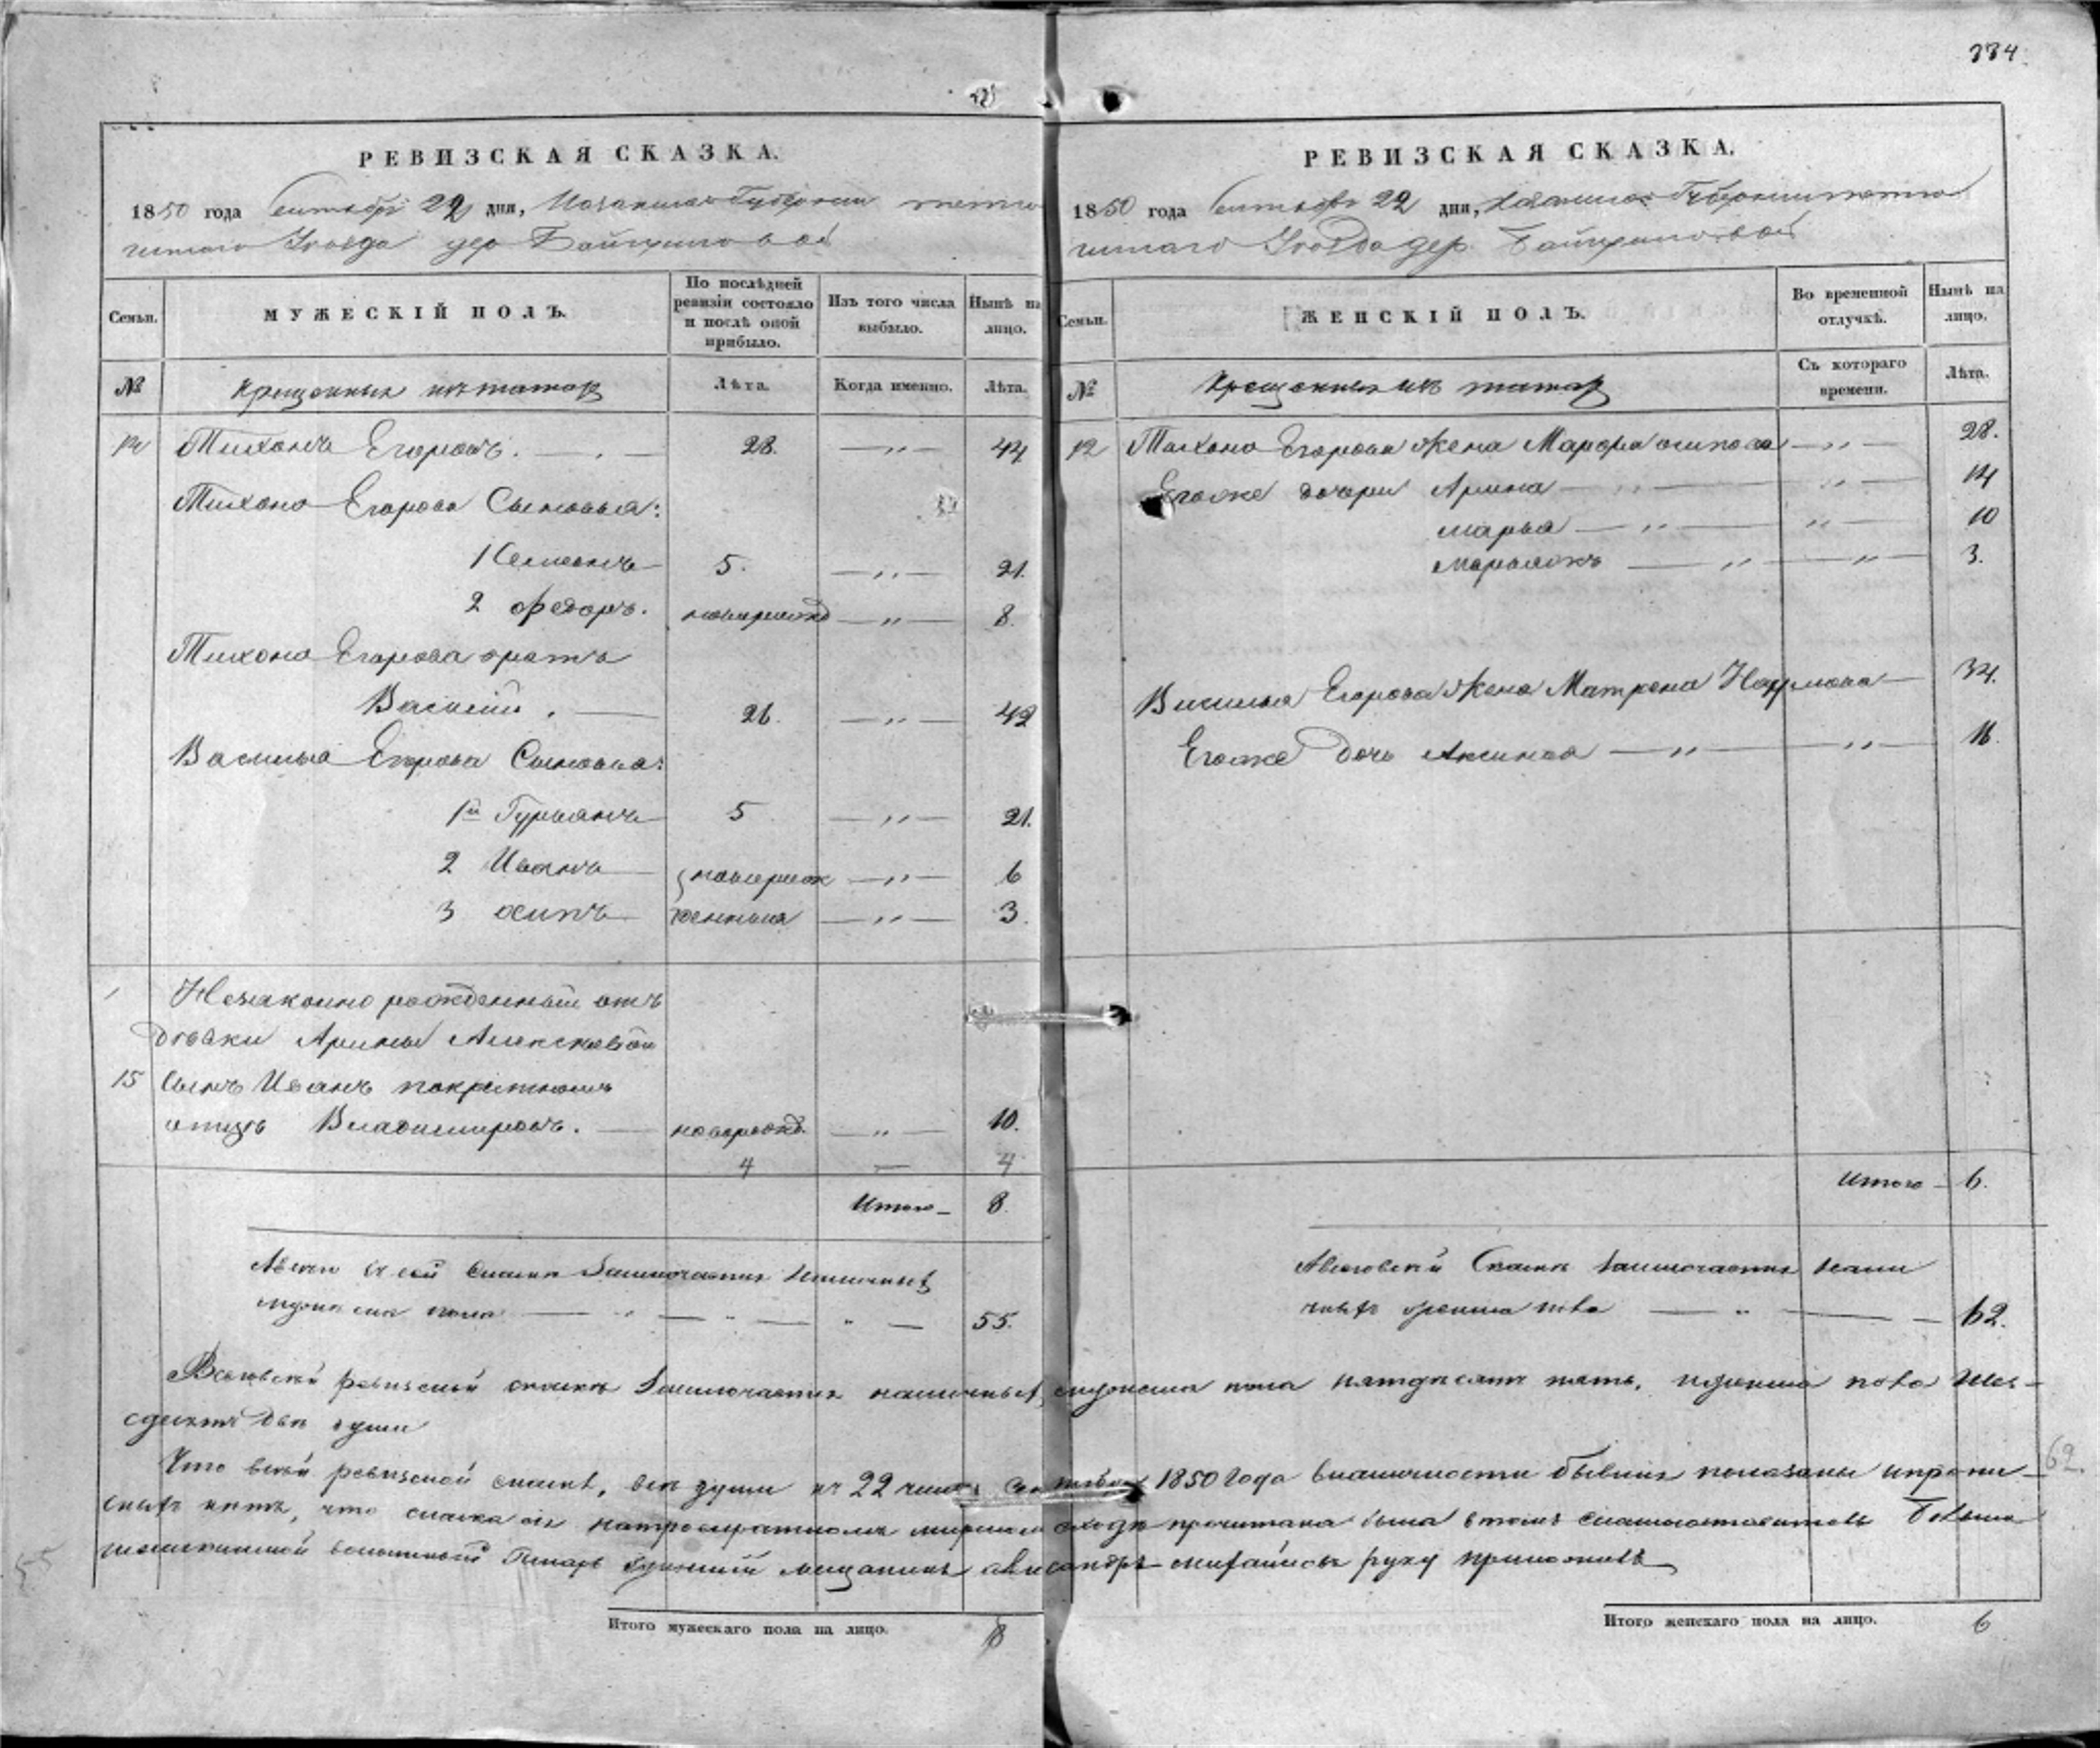 334.
РЕВИЗСКАЯ СКАЗКА.
1850 года Сентября 22 дня, Казанской Губернии тетю
шскаго Уезда дер
Семьи.
МУЖЕСКІЙ ПОЛЪ.
По послѣдней ревизіи состояло и послѣ оной прибыло.
Изъ того числа выбыло.
Нынѣ на лицо.
№
Крещенныхъ изъ татаръ
Лѣта.
Когда именно.
Лѣта.
12 Тихонъ Егоровъ. 28. — „ — 44
Тихона Егорова Сыновья:
1 Семенъ 5. — „ — 21.
2 Федоръ. новорожд — „ — 8.
Тихона Егорова братъ
Василій. 26. — „ — 42
Василья Егорова Сыновья:
1й Гурьянъ 5 — „ — 21.
2 Иванъ новорож — „ — 6
3 осипъ денныя — „ — 3.
Незаконно рожденный отъ
дѣвки Арины Алексѣевой
15 Сынъ Иванъ покрестному
отцу Владимировъ. — новорожд. — „ — 10.
4 — 4
Итого — 8.
Авсего в сей Сказке Заключается наличныхъ
мужеска пола — „ — „ — „ — 55.
РЕВИЗСКАЯ СКАЗКА.
1850 года Сентября 22 дня, Казанской Губернии тетю
шскаго Уезда дер.
Семьи.
ЖЕНСКІЙ ПОЛЪ.
Во временной отлучкѣ.
Нынѣ на лицо.
№
Крещенныхъ изъ татаръ
Съ котораго времени.
Лѣта.
12 Тихона Егорова Жена Марфа осипова — „ — 28.
Егоже дочери Арина — „ — „ — 14
марья — „ — „ — 10
— „ — „ — 3.
Василья Егорова Жена Матрена Наумова — 34.
Егоже Дочь Аксинья — „ — „ — 16.
Итого — 6.
Авсего в сей Сказке Заключается нали
чныхъ женска пола — „ — 62.
Всего в сей ревизской сказке Заключается наличныхъ, мужеска пола пятдесятъ пять, и женска пола шес-
десятъ две души
62.
Что в сей ревизской сказке, все души къ 22 числу Сентября 1850 Года вналичности бывшия показаны и прописныхъ нетъ, что сказка сия мирскомъ сходе прочитана была в томъ
волостной Писарь мещанинъ александръ руку приложилъ
55
Итого мужескаго пола на лицо. 8
Итого женскаго пола на лицо. 6